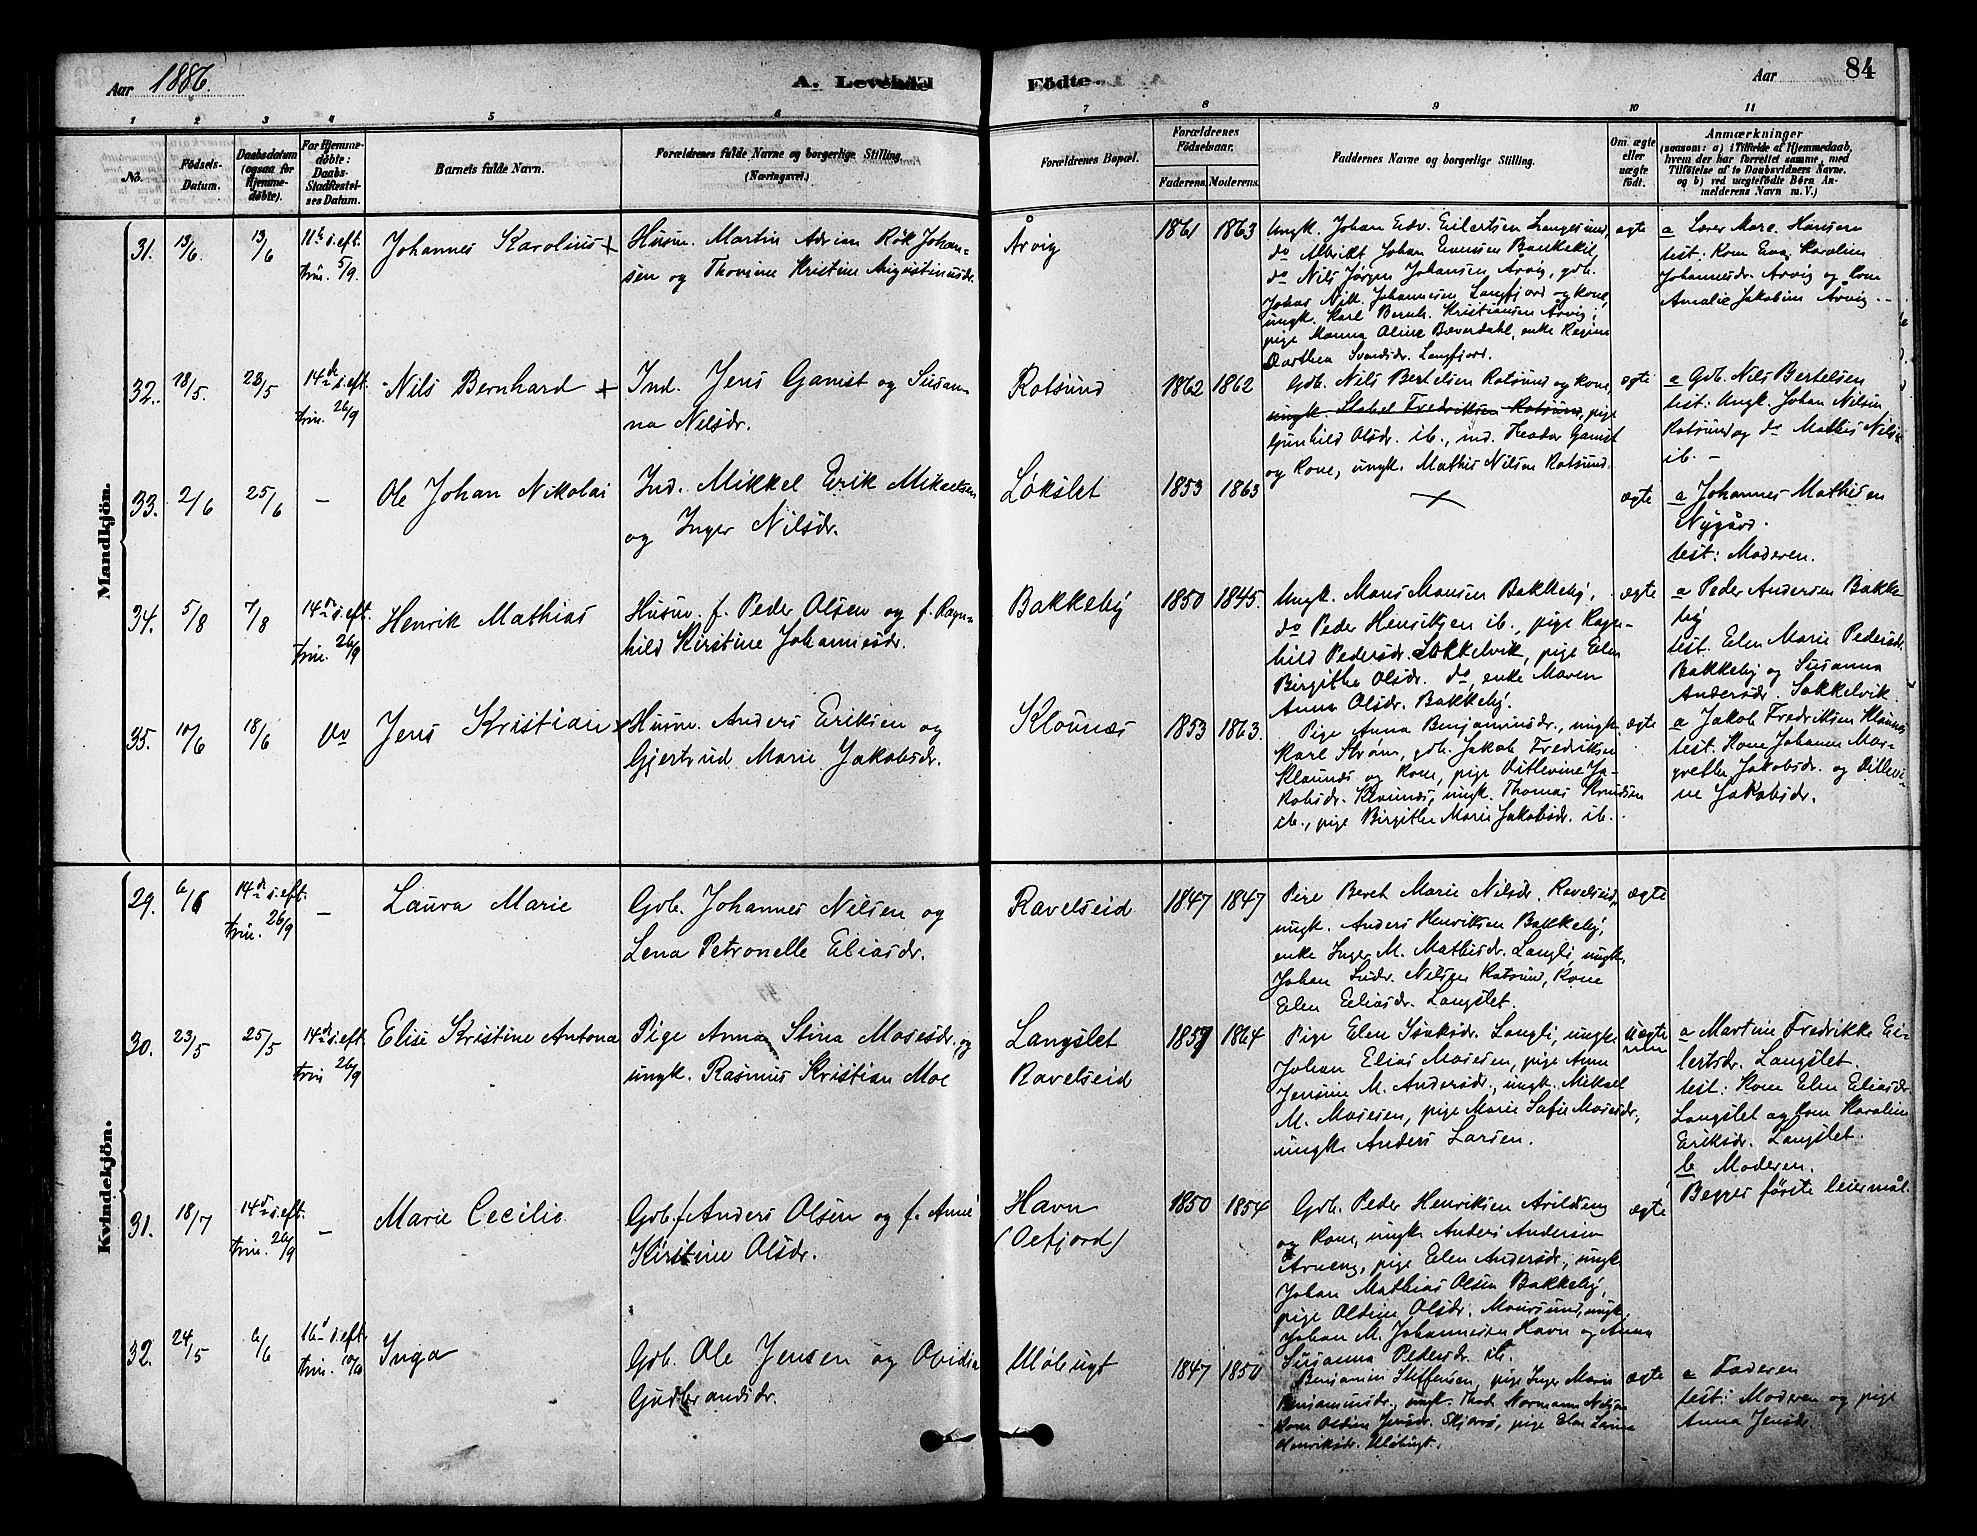 Aar 1886.
A. Levende
Födte.
Aar
84
1
2
3
4
5
6
7
8
9
10
11
No.
Födsels-
Datum.
Daabsdatum
(ogsaa for
Hjemme-
döbte).
For Hjemme-
döbte:
Daabs-
Stadfæstel-
ses Datum.
Barnets fulde Navn.
Forældrenes fulde Navne og borgerlige Stilling.
(Næringsvei.)
Forældrenes Bopæl.
Forældrenes
Födselsaar.
Faderens.
Moderens.
Faddernes Navne og borgerlige Stilling.
Om ægte
eller
uægte
födt.
Anmærkninger
(saasom: a) i Tilfælde af Hjemmedaab,
hvem der har forrettet samme, med
Tilföielse af to Daabsvidners Navne.
og b) ved uægtefödte Börn An-
melderens Navn m. V.)
Mandkjön.
31.
13/6.
13/6
11te s. eft.
trin. 5/9.
Johannes Karolius +
Husm. Martin Adrian Rök Johan-
sen og Thomine Kristine Augustinusdr.
Årvig
1861
1863
Ungk. Johan Edv. Eilertsen Langesund,
do Albrikt Johan Evensen Bankekil,
do Nils Jørgen Johansen Årvig, gdb.
Johas Nik. Johannesen Langfjord og kone,
ungk. Karl Bernh. Kristiansen Årvig,
pige Manna Oline Bæverdahl, enke Regine
Dorthea Svendsdr. Langfjord.
ægte
a Lærer Marc. Hansen
test: Kone Eva Karoline
Johannesdr. Arvig og Kone
Amalie Jakobine Årvig.
32.
18/5.
23/5
14de s. eft.
trin. 26/9
Nils Bernhard +
Ind. Jens Ganist og Susan-
na Nilsdr.
Rotsund
1862
1862
Gdb. Nils Bertelsen Rotsund og kone,
ungk. Fredriksen Rotsund, pige
Gunhild Olsdr. ib., ind. Teodor Ganist
og Kone, ungk. Mathis Nilsen Rotsund.
ægte
a Gdb. Nils Bertelsen
test: Ungk. Johan Nilsen
Rotsund og do Mathis Nilsen
ib. -
33.
2/6
25/6
-
Ole Johan Nikolai
Ind. Mikkel Erik Mikaelsen
og Inger Nilsdr.
Løkslet
1853
1863
+
ægte
a Johannes Mathisen
Nygård.
test: Moderen.
34.
5/8
7/8
14de s. eft.
trin. 26/9
Henrik Mathias
Husm. f. Peder Olsen og f. Ragn-
hild Kirstine Johannesdr.
Bakkeby
1850
1845.
Ungk. Mons Monsen Bakkeby,
do Peder Henriksen ib., pige Ragn-
hild Pedersdr. Sokkelvik, pige Elen
Birgithe Olsdr. do, enke Maren
Anna Olsdr. Bakkeby.
ægte
a Peder Andersen Bakke-
by
test. Elen Marie Pedersdr.
Bakkeby og Susanna
Andersdr. Sokkelvik
35.
10/6
18/6
do
Jens Kristian +
Husm. Anders Eriksen og
Gjertrud Marie Jakobsdr.
Klounæs
1853
1863.
Pige Anna Benjaminsdr., ungk.
Karl Strøm, gdb. Jakob Fredriksen
Klounæs og Kone, pige Ditlevine Ja-
kobsdr. Klounæs, ungk. Thomas Knudsen
ib., pige Birgithe Marie Jakobsdr. ib.
ægte
a Jakob Fredriksen Klounæs
test: Kone Johanne Mar-
grethe Jakobsdr. og Ditlevi-
ne Jakobsdr.
Kvindekjön.
29.
6/6
14de s. eft.
trin. 26/9
-
Laura Marie
Gdb. Johannes Nilsen og
Lena Petronelle Eliasdr.
Ravelseid
1847
1847
Pige Beret Marie Nilsdr. Ravelseid,
ungk. Anders Henriksen Bakkeby,
enke Inger M. Mathisdr. Langli, ungk.
Johan Nilsen Rotsund, Kone
Elen Eliasdr. Langslet.
ægte
30.
23/5
25/5
14de s. eft
trin 26/9
Elise Kristine Antona
Pige Anna Stina Mosesdr. og
ungk. Rasmus Kristian Moe
Langslet
Ravelseid
1859
1864
Pige Elen Langli, ungk.
Johan Elias Mosesen, pige Anne
Jensine M. Andersdr., ungk. Mikkel
M. Mosesen, pige Marie Sofie Mosesdr.,
ungk. Anders Larsen.
uægte
a Martine Fredrikke Ei-
lertsdr. Langslet.
test: Kone Elen Eliasdr.
Langslet og Kone Karoline
Eriksdr. Langslet.
b Moderen.
Begges første leiermål.
31.
18/7
14de s. eft.
trin. 26/9
-
Marie Cecilie
Gdb. f. Anders Olsen og f. Anne
Kirstine Olsdr.
Havn
(Oxfjord)
1850
1854
Gdb. Peder Henriksen
og Kone, ungk. Anders Andersen
pige Elen Andersdr., ungk.
Johan Mathias Olsen Bakkeby,
pige Oldine Olsdr. Maursund, ungk.
Johan M. Johannesen Havn og Anna
Susanna Pedersdr. ib.
ægte
32.
24/5
6/6
16de s. eft.
trin. 10/10
Inga
Gdb. Ole Jensen og Ovidia
Gudbrandsdr.
Uløbugt
1847
1850
Benjamin Steffensen, pige Inger Marie
Benjaminsdr., ungk. Normann Nilsen
Kone Oldine Jensdr. Skjervø, pige Elen Laura
Henriksdr. Uløbugt.
ægte
a Faderen
test: Moderen og pige
Anna Jensdr.